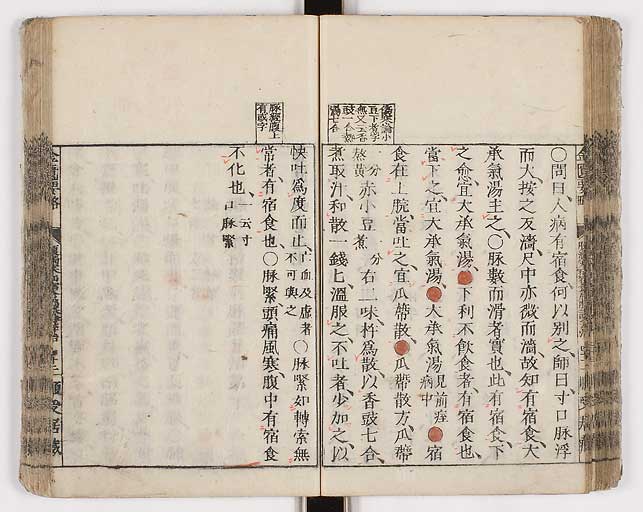 ○問曰人病有宿食何以別之師曰寸口脉浮
而大按之反濇尺中亦微而濇故知有宿食大
承氣湯主之○脉數而滑者實也此有宿食下
之愈宜大承氣湯 下利不飲食者有宿食也
當下之宜大承氣湯 大承氣湯見前痓病中 宿
食在上脘當吐之宜瓜蒂散 瓜蒂散方瓜蒂
一分熬黃赤小豆一分煮右二味杵為散以香豉七合
煮取汁和散一錢匕溫服之不吐者少加之以
快吐為度而止亡血及虛者不可與之○脉緊如轉索無
常者有宿食也○脉緊頭痛風寒腹中有宿食
不化也一云寸口脉緊
脉緊腹上
有或字
金匱要略